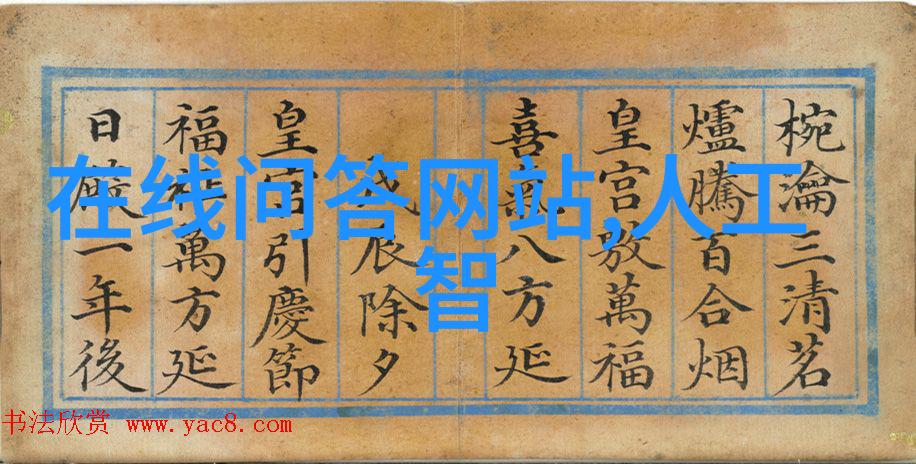 椀瀹三清茗
爐騰百合烟
皇宮敷萬福
喜氣八方延
辰除夕
皇宮引慶節
福萬方延
日一年後
在线问答网站,人工
智
书法欣赏 www.yac8.com